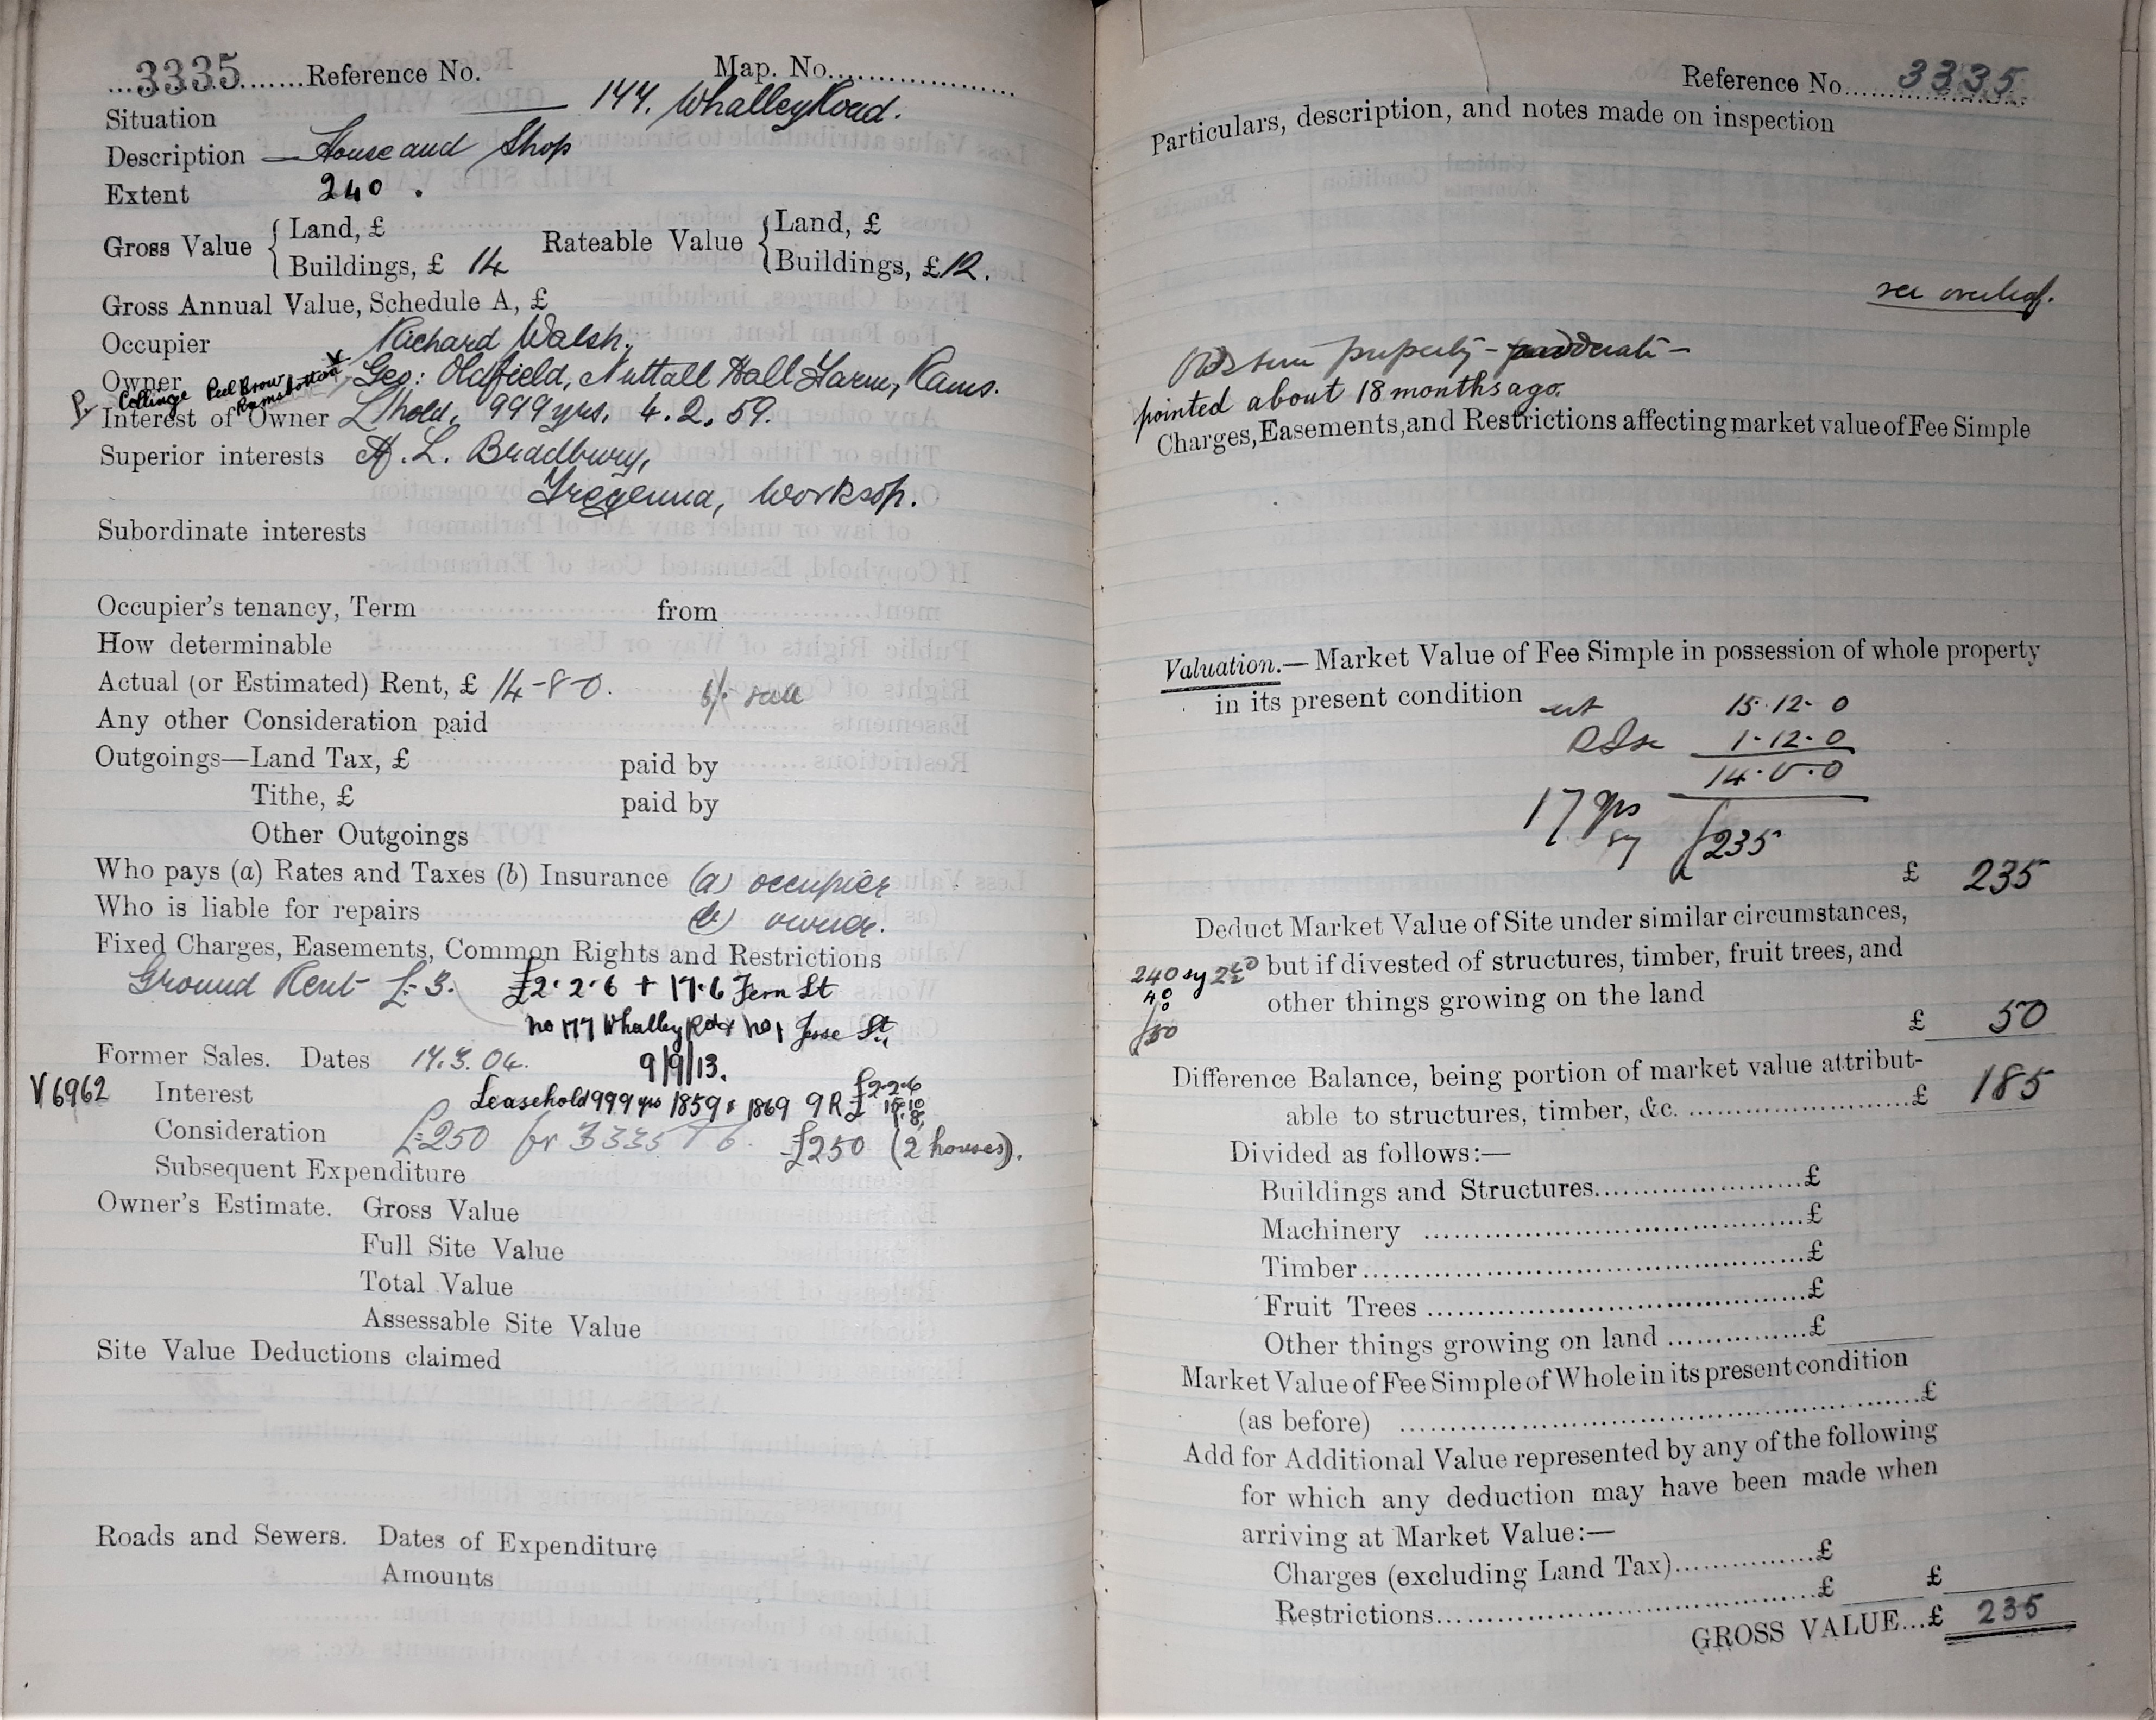 3335 Reference No. Map. No.
Situation 177. Whalley Road.
Description House and Shop
Extent 240.
Gross Value { Land, £ Rateable Value { Land, £
Buildings, £ 14 Buildings, £12.
Gross Annual Value, Schedule A, £
Occupier Richard Walsh.
Owner Geo: Oldfield, Nuttall Hall Farm, Rams.
P. Collinge Peel Brow Ramsbottom
Interest of Owner L'hold, 999 yrs. 4.2.59.
Superior interests A. L. Bradbury,
Tregenna, Worksop.
Subordinate interests
Occupier's tenancy, Term from
How determinable
Actual (or Estimated) Rent, £ 14-8-0.
Any other Consideration paid
Outgoings—Land Tax, £ paid by
Tithe, £ paid by
Other Outgoings
Who pays (a) Rates and Taxes (b) Insurance (a) occupier
Who is liable for repairs (b) owner.
Fixed Charges, Easements, Common Rights and Restrictions
Ground Rent £3. £2.2.6 + 17.6 Fern St
No 177 Whalley Rd & No 1 Jesse St.,
Former Sales. Dates 17.3.04. 9/9/13.
V6962 Interest Leasehold 999 yrs 1859 & 1869 GR £2.2.6
Consideration £250 for 3335 & 6. £250 (2 houses).
Subsequent Expenditure
Owner's Estimate. Gross Value
Full Site Value
Total Value
Assessable Site Value
Site Value Deductions claimed
Roads and Sewers. Dates of Expenditure
Amounts
Reference No. 3335
Particulars, description, and notes made on inspection
see overleaf.
property - moderate -
pointed about 18 months ago.
Charges, Easements, and Restrictions affecting market value of Fee Simple
Valuation.—Market Value of Fee Simple in possession of whole property
in its present condition 15.12.0
1.12.0
14.0.0
17 yrs
say £235
£ 235
Deduct Market Value of Site under similar circumstances,
but if divested of structures, timber, fruit trees, and
other things growing on the land
240 sy
£50
£ 50
Difference Balance, being portion of market value attribut-
able to structures, timber, &c. £ 185
Divided as follows:—
Buildings and Structures £
Machinery £
Timber £
Fruit Trees £
Other things growing on land £
Market Value of Fee Simple of Whole in its present condition
(as before) £
Add for Additional Value represented by any of the following
for which any deduction may have been made when
arriving at Market Value:—
Charges (excluding Land Tax) £
Restrictions £ £
GROSS VALUE...£ 235